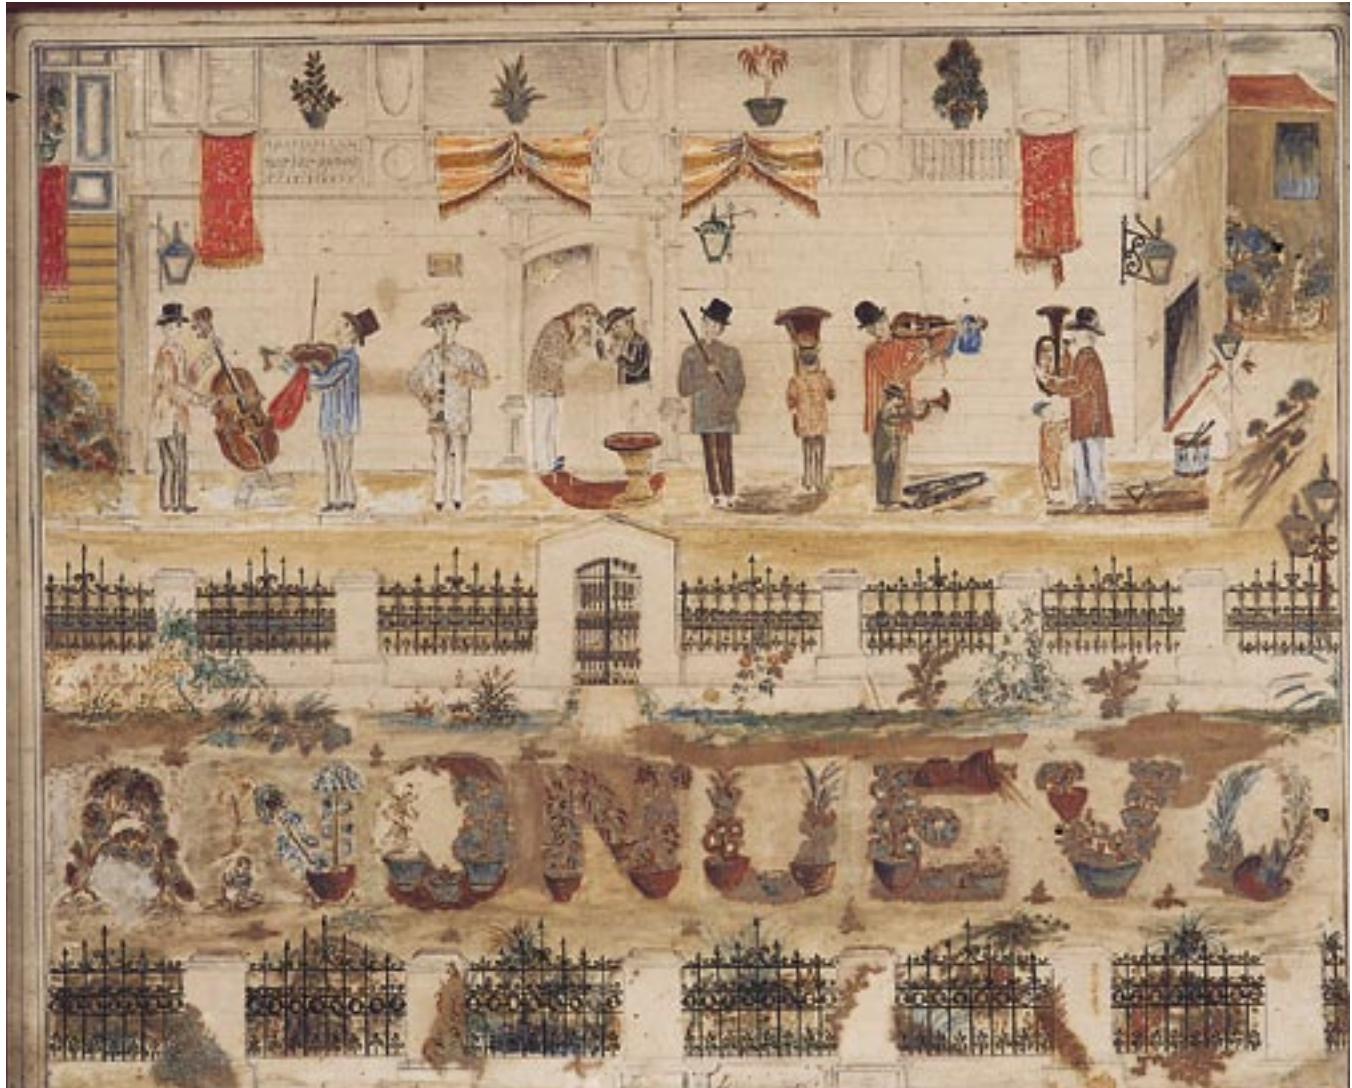 ANO NUEVO